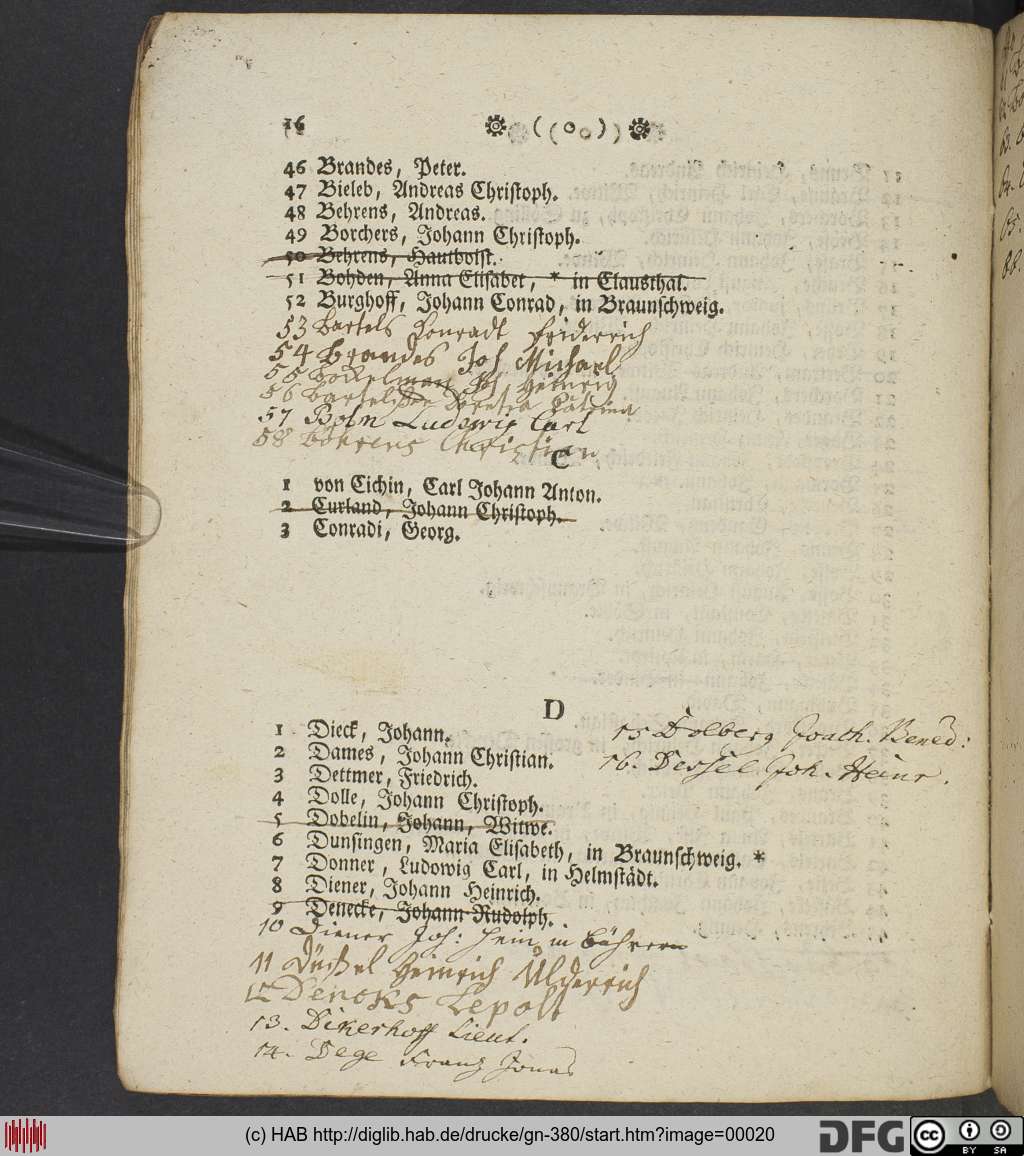 16
46 Brandes, Peter.
47 Bieleb, Andreas Christoph.
48 Behrens, Andreas.
49 Borchers, Johann Christoph.
50 Behrens, Hautboist.
51 Bohden, Anna Elisabet, * in Clausthal.
52 Burghoff, Johann Conrad, in Braunschweig.
53 Bartels Conradt Friderrich
54 Brandes Joh. Michael
55 Bockelman Joh. Heinrig
56 Doretia
57 Bolm Ludewig Carl
58 Böhrens Christian
C
1 von Cichin, Carl Johann Anton.
2 Curland, Johann Christoph.
3 Conradi, Georg.
D
1 Dieck, Johann.
2 Dames, Johann Christian.
3 Dettmer, Friedrich.
4 Dolle, Johann Christoph.
5 Dobelin, Johann, Witwe.
6 Dunsingen, Maria Elisabeth, in Braunschweig. *
7 Donner, Ludowig Carl, in Helmstädt.
8 Diener, Johann Heinrich.
9 Denecke, Johann Rudolph.
10 Diener Joh: Hein in
11 Heinrich Ulderrich
12 Lepolt
13. Dikerhoff Lieut.
14. Dege Franz Jonas
15 Dolberg Joach. Bened:
16. Dessel Joh. Heinr.
(c) HAB http://diglib.hab.de/drucke/gn-380/start.htm?image=00020
DFG
CC
BY SA